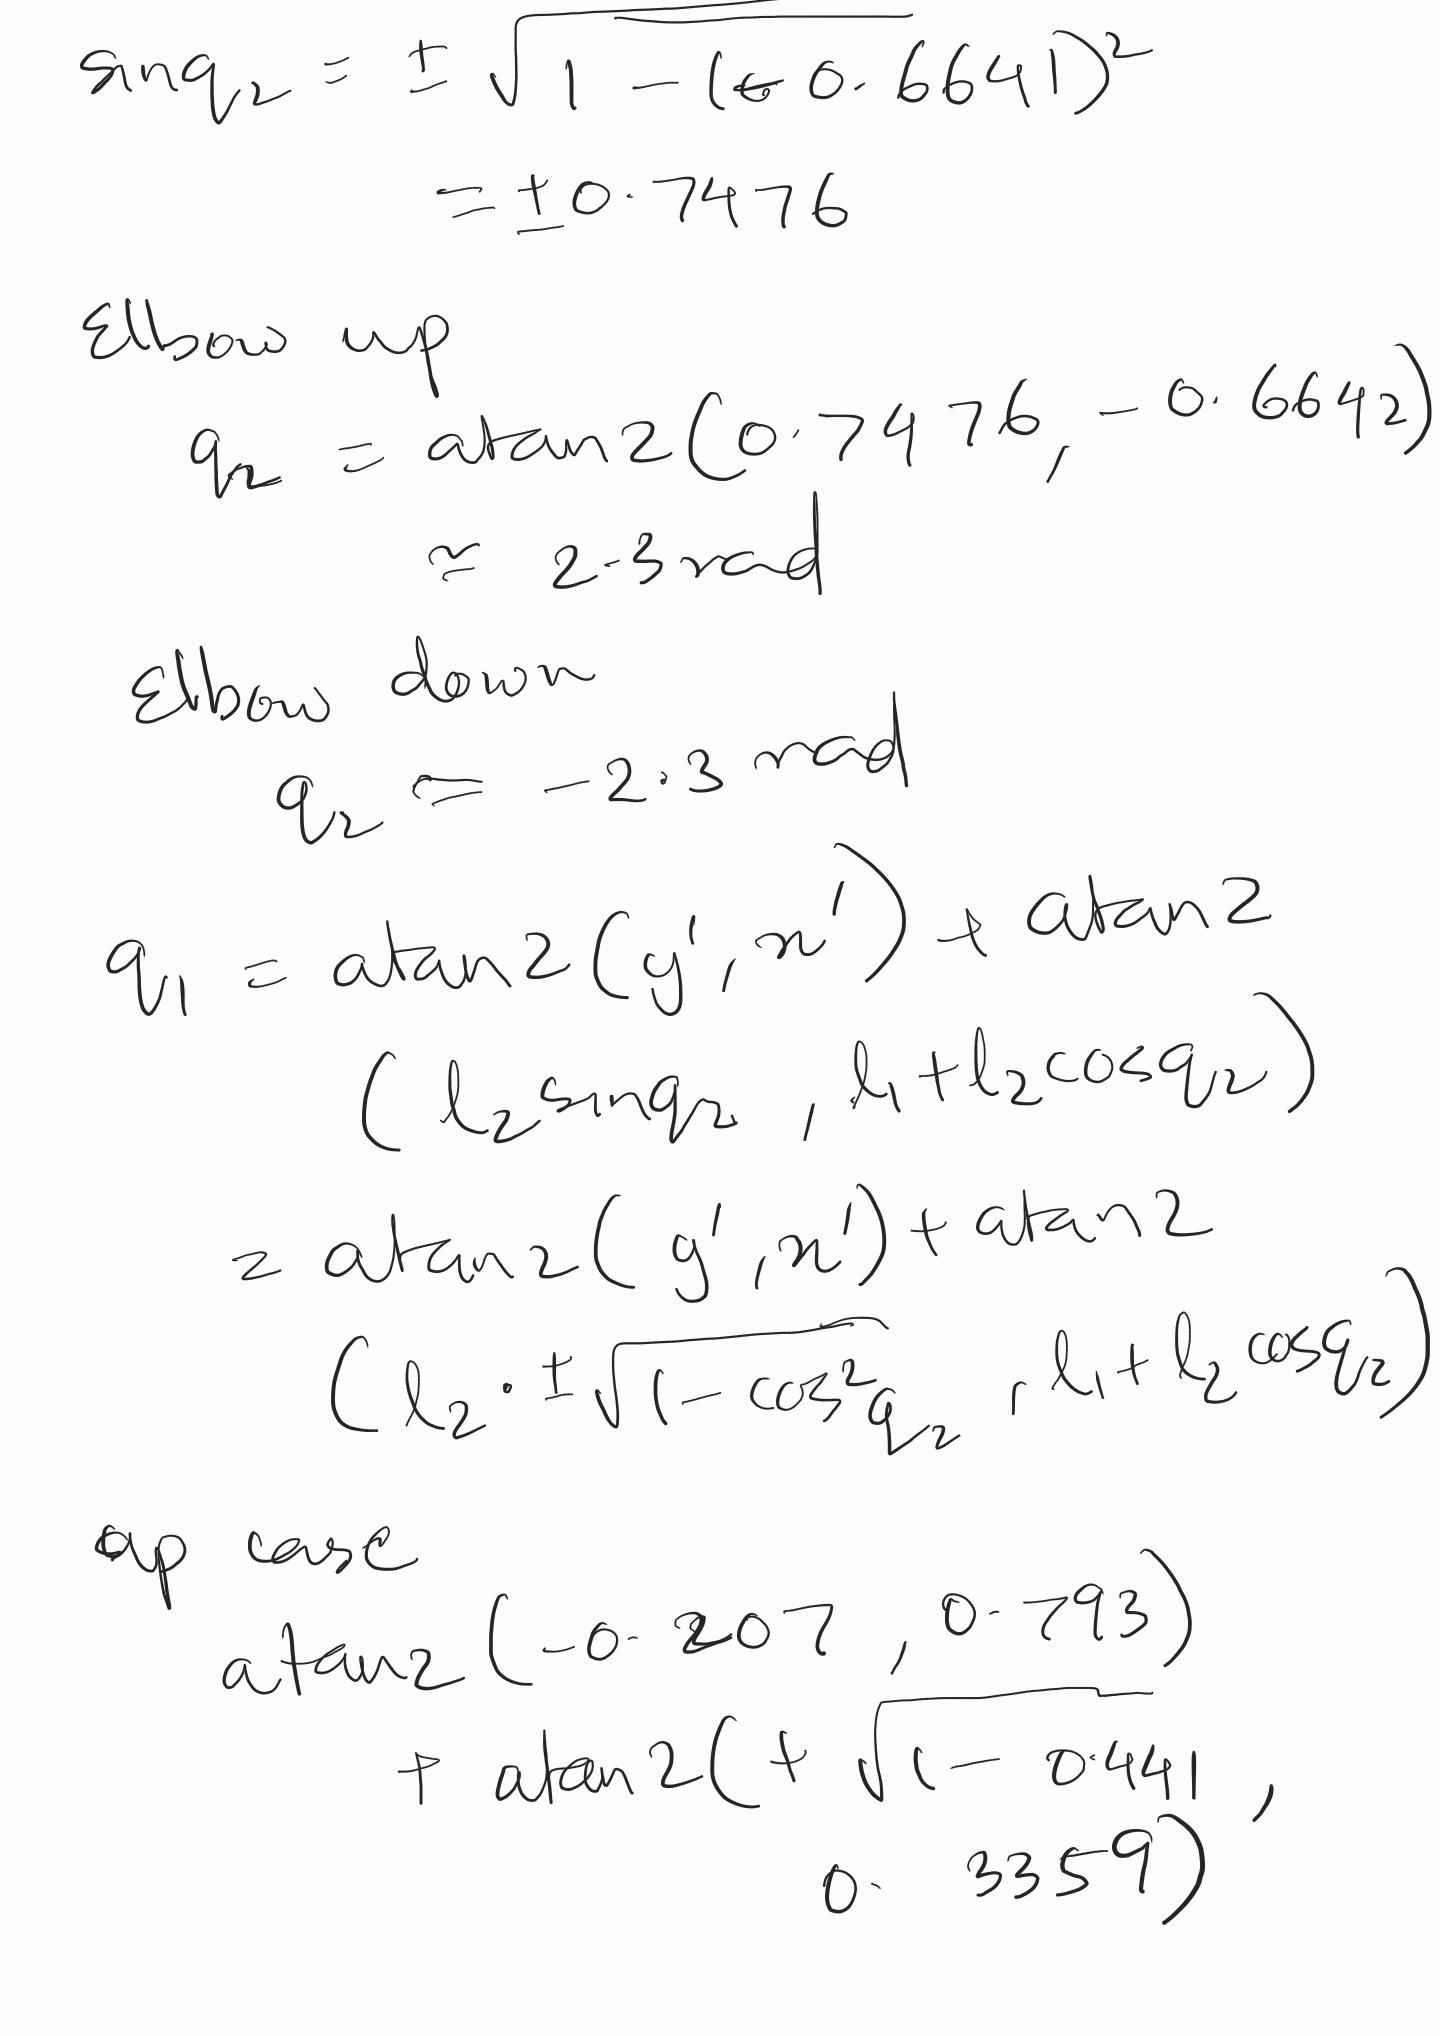 sinq₂ = ± √1 - (-0.6641)²
= ±0.7476
Elbow up
q₂ = atan2(0.7476, -0.6642)
≃ 2.3rad
Elbow down
q₂ ≃ -2.3 rad
q₁ = atan2(y', x') + atan2
(l₂sinq₂, l₁+l₂cosq₂)
= atan2(y', x') + atan2
(l₂.±√1-cos²q₂, l₁+l₂cosq₂)
up case
atan2(-0.207, 0.793)
+ atan2(+ √1-0.441,
0.3359)